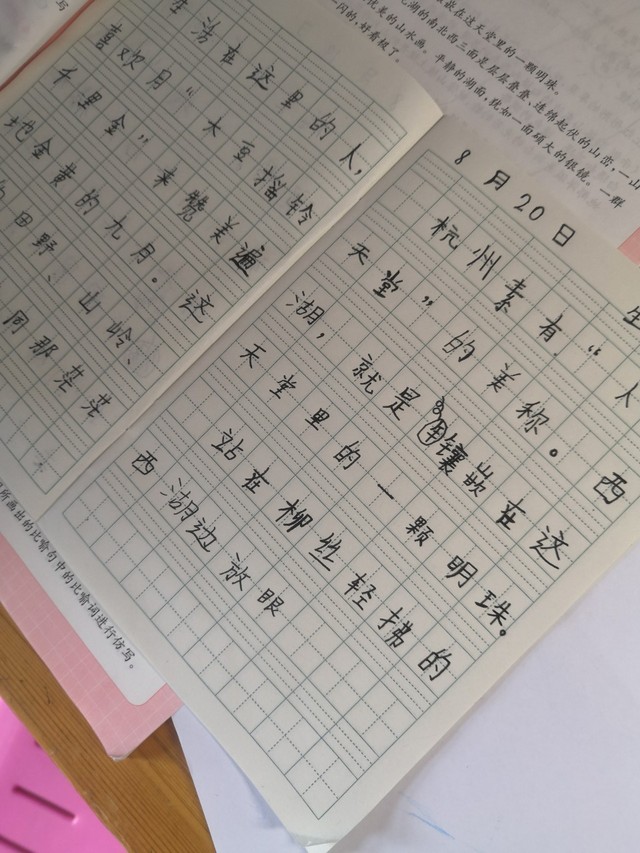 生活在这里的人，
喜欢用“大豆摇铃
千里金”来赞美遍
地金黄的九月。这
田野、山岭、
同那茫茫
8月20日 星
杭州素有“人
天堂”的美称。西
湖，就是镶嵌在这
天堂里的一颗明珠。
站在柳丝轻拂的
西湖边放眼
嵌在这天堂里的一颗明珠。
湖的南北西三面是层层叠叠、连绵起伏的山峦，一山
优美的山水画。平静的湖面，犹如一面硕大的银镜。一群
闪的，好看极了。
所画出的比喻句中的比喻词进行仿写。
写